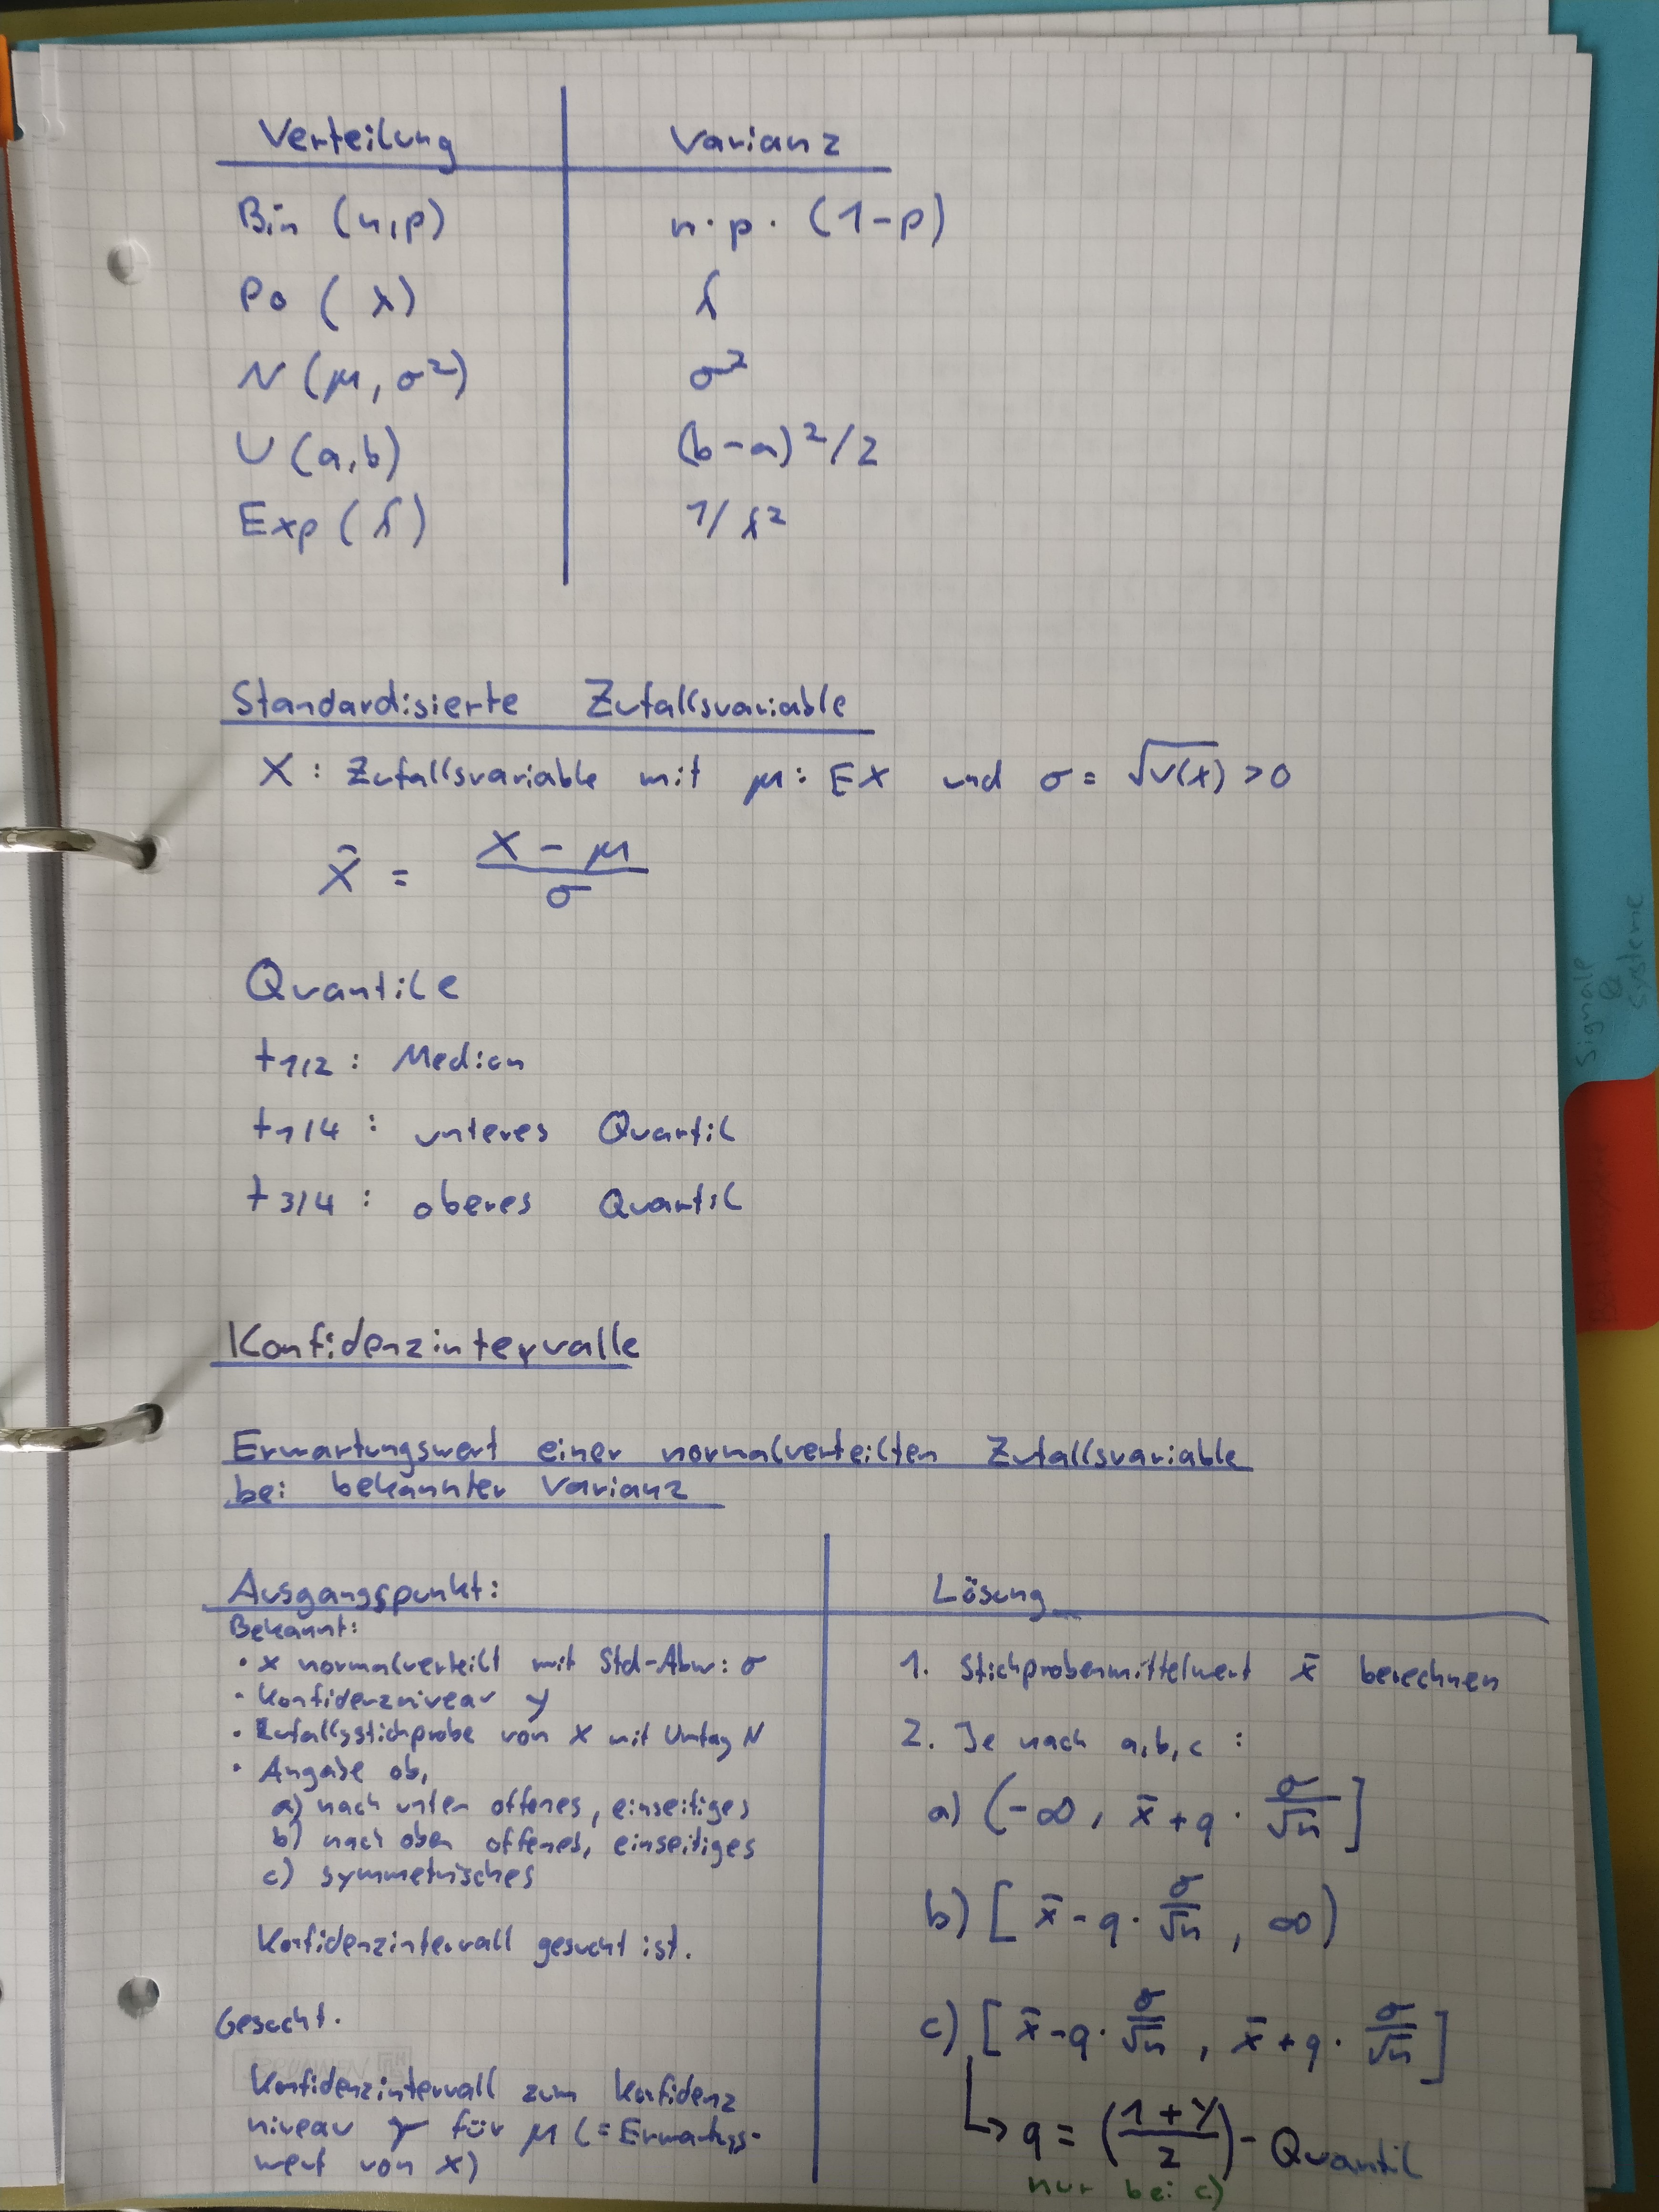 Verteilung | Varianz
Bin (n,p) | n·p·(1-p)
Po (λ) | λ
N (μ, σ²) | σ²
U (a,b) | (b-a)²/2
Exp (λ) | 1/λ²
Standardisierte Zufallsvariable
X : Zufallsvariable mit μ: EX und σ = √V(X) > 0
X̃ = (X - μ)/σ
Quantile
t1/2 : Median
t1/4 : unteres Quartil
t3/4 : oberes Quartil
Konfidenzintervalle
Erwartungswert einer normalverteilten Zufallsvariable
bei bekannter Varianz
Ausgangspunkt:
Bekannt:
· x normalverteilt mit Std-Abw: σ
· Konfidenzniveau γ
· Zufallsstichprobe von X mit Umfag N
· Angabe ob,
a) nach unten offenes, einseitiges
b) nach oben offenes, einseitiges
c) symmetrisches
Konfidenzintervall gesucht ist.
Gesucht.
Konfidenzintervall zum Konfidenz
niveau γ für μ (=Erwartugs-
wert von X)
Lösung
1. Stichprobenmittelwert x̄ berechnen
2. Je nach a,b,c :
a) (-∞, x̄ + q · σ/√n ]
b) [ x̄ - q · σ/√n , ∞)
c) [ x̄ - q · σ/√n , x̄ + q · σ/√n ]
↳ q = ((1+γ)/2) - Quantil
nur bei c)
Signale
&
Systeme